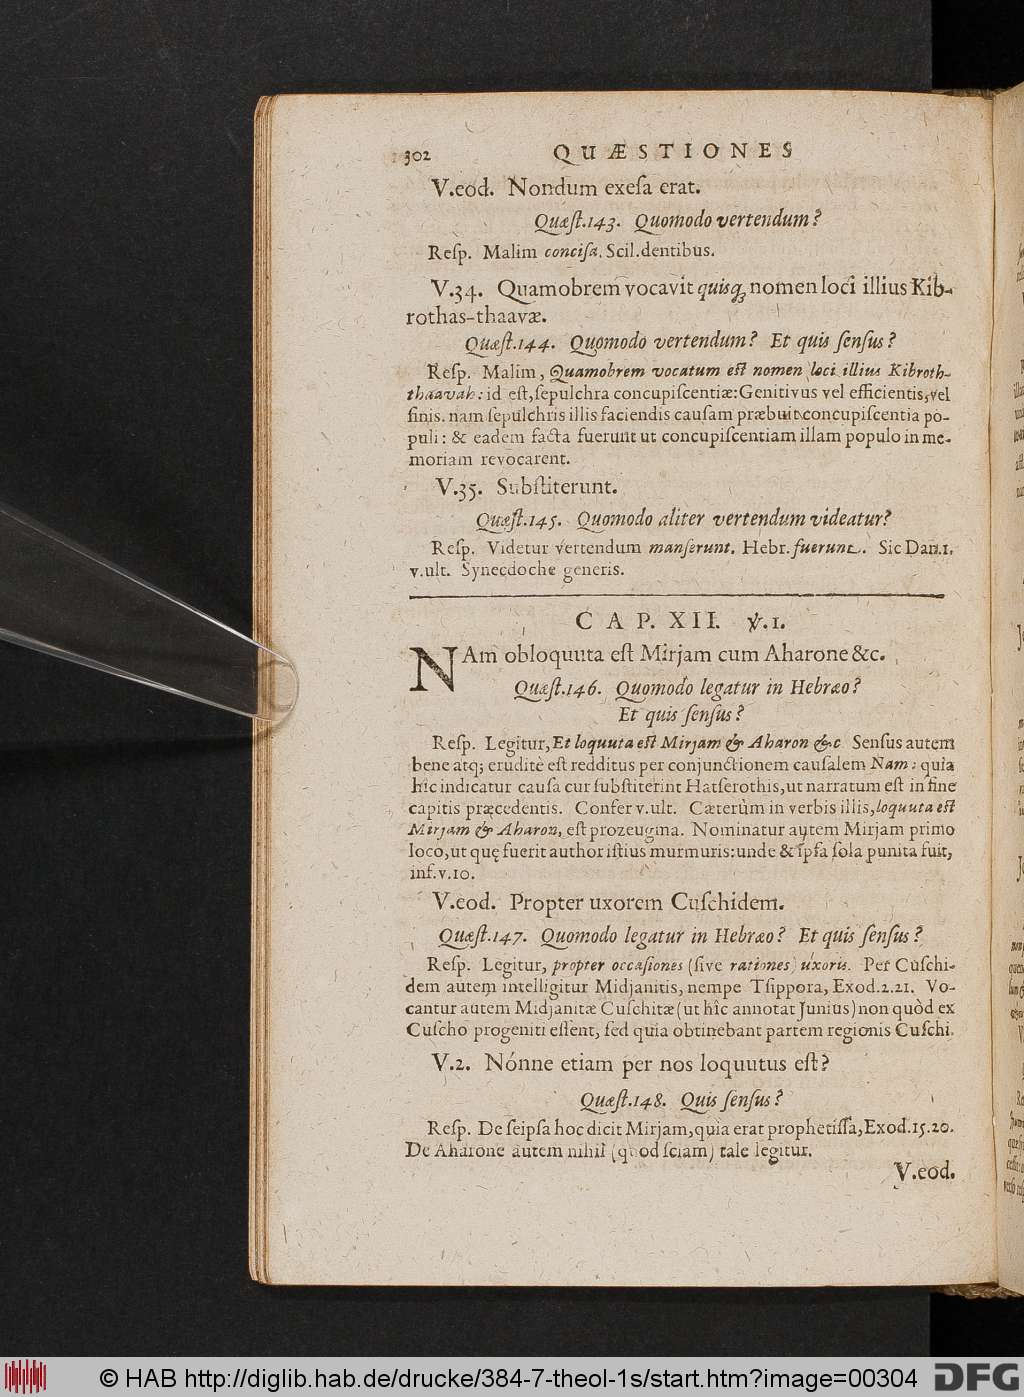 302 QUÆSTIONES
V.eod. Nondum exeſa erat.
Quæſt.143. Quomodo vertendum?
Reſp. Malim conciſa. Scil.dentibus.
V.34. Quamobrem vocavit quisq; nomen loci illius Kib-
rothas-thaavæ.
Quæſt.144. Quomodo vertendum? Et quis ſenſus?
Reſp. Malim, Quamobrem vocatum eſt nomen loci illius Kibroth-
thaavah: id eſt, ſepulchra concupiſcentiæ: Genitivus vel efficientis, vel
finis. nam ſepulchris illis faciendis cauſam præbuit concupiſcentia po-
puli: & eadem facta fuerunt ut concupiſcentiam illam populo in me-
moriam revocarent.
V.35. Subſtiterunt.
Quæſt.145. Quomodo aliter vertendum videatur?
Reſp. Videtur vertendum manſerunt. Hebr. fuerunt. Sic Dan.1.
v.ult. Synecdoche generis.
CAP. XII. ℣.1.
NAm obloquuta eſt Mirjam cum Aharone &c.
Quæſt.146. Quomodo legatur in Hebræo?
Et quis ſenſus?
Reſp. Legitur, Et loquuta eſt Mirjam & Aharon &c Senſus autem
bene atq; eruditè eſt redditus per conjunctionem cauſalem Nam: quia
hîc indicatur cauſa cur ſubſtiterint Hatſerothis, ut narratum eſt in fine
capitis præcedentis. Confer v.ult. Cæterùm in verbis illis, loquuta eſt
Mirjam & Aharon, eſt prozeugma. Nominatur autem Mirjam primo
loco, ut quę fuerit author iſtius murmuris: unde & ipſa ſola punita fuit,
inf.v.10.
V.eod. Propter uxorem Cuſchidem.
Quæſt.147. Quomodo legatur in Hebræo? Et quis ſenſus?
Reſp. Legitur, propter occaſiones (ſive rationes) uxoris. Per Cuſchi-
dem autem intelligitur Midjanitis, nempe Tſippora, Exod.2.21. Vo-
cantur autem Midjanitæ Cuſchitæ (ut hîc annotat Junius) non quòd ex
Cuſcho progeniti eſſent, ſed quia obtinebant partem regionis Cuſchi.
V.2. Nónne etiam per nos loquutus eſt?
Quæſt.148. Quis ſenſus?
Reſp. De ſeipſa hoc dicit Mirjam, quia erat prophetiſſa, Exod.15.20.
De Aharone autem nihil (quod ſciam) tale legitur.
V.eod.
© HAB http://diglib.hab.de/drucke/384-7-theol-1s/start.htm?image=00304
DFG